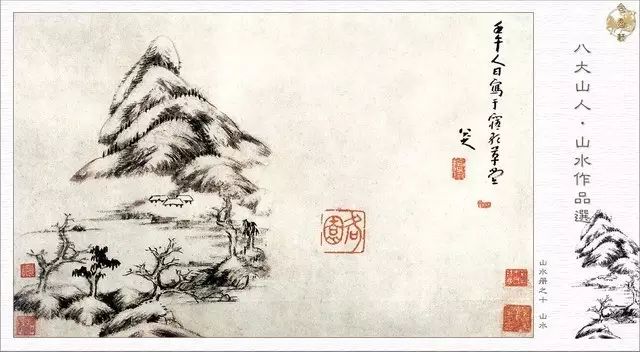 八大山人・山水作品選
壬午人日寫于寤歌草堂
八大
山水册之十 山水